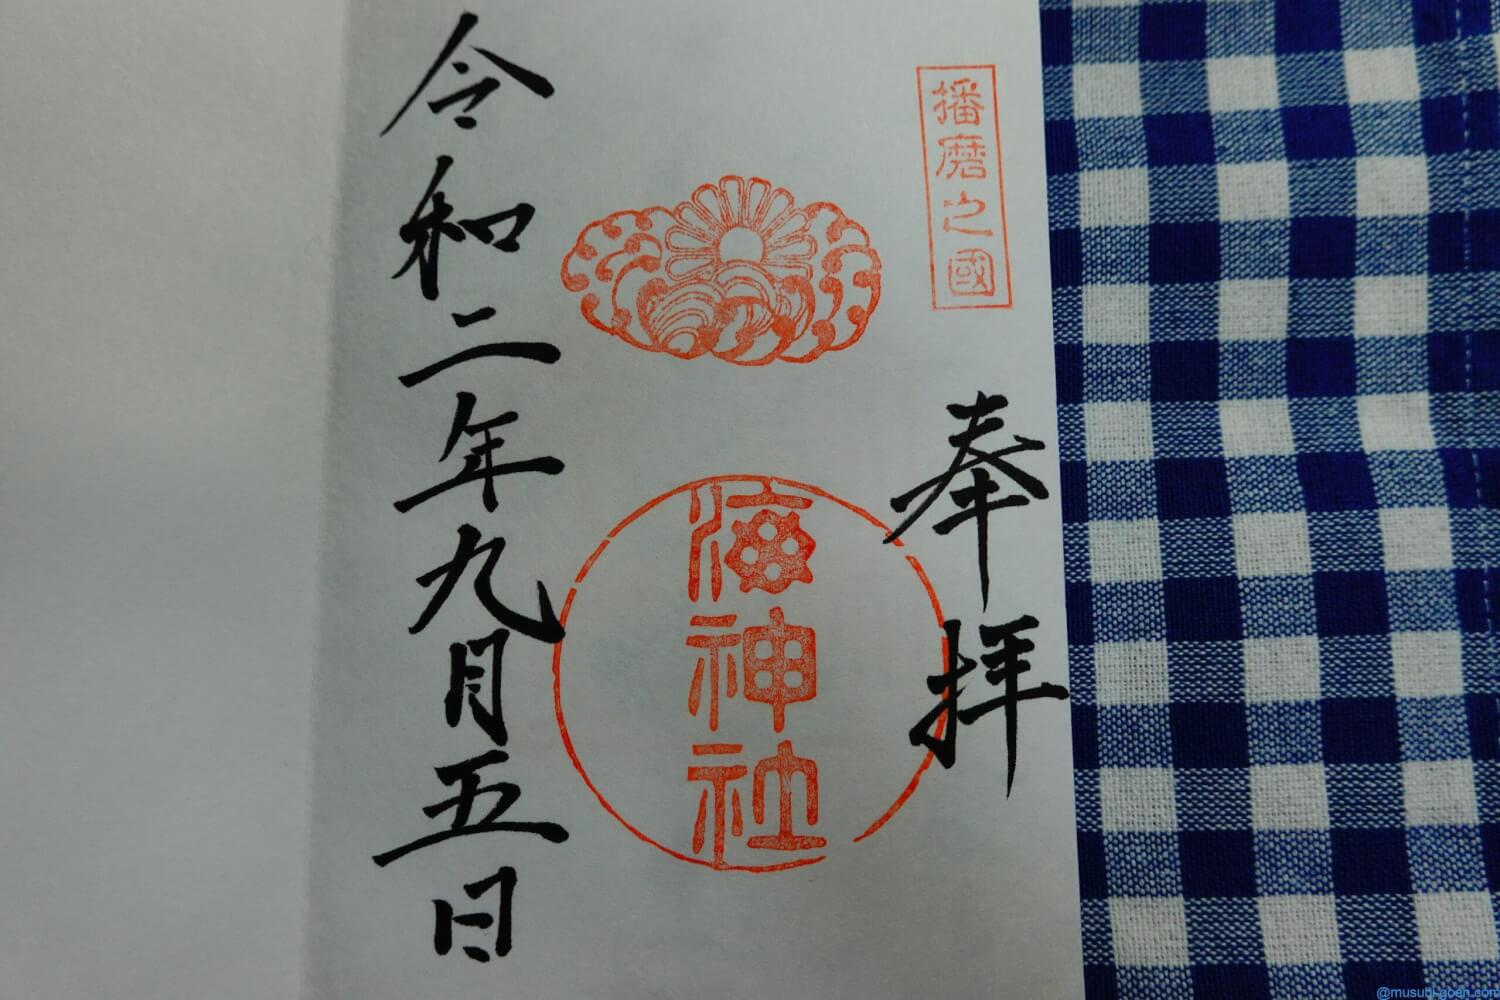 播磨之國
奉拝
海神社
令和二年九月五日
@musubi-goen.com